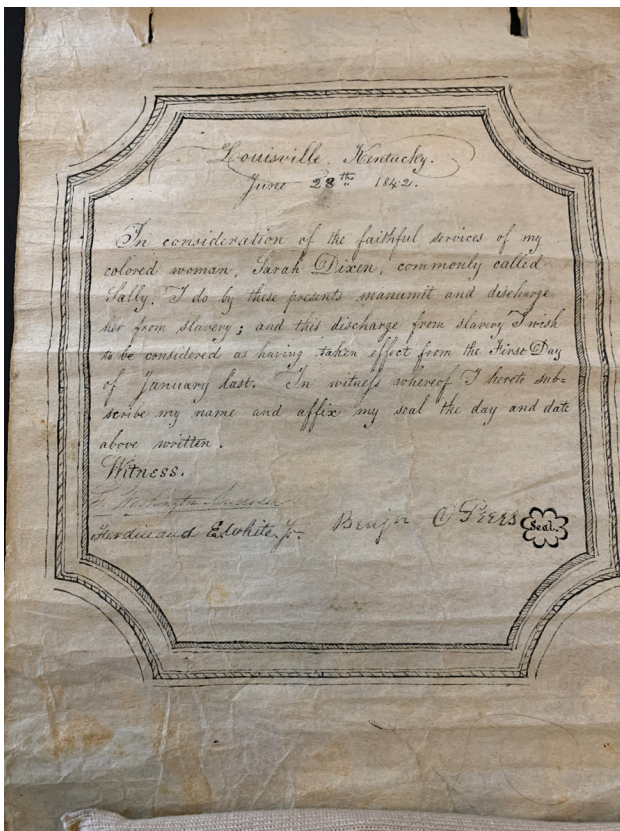 Louisville, Kentucky.
June 28th 1842.
In consideration of the faithful services of my
colored woman, Sarah Dixen, commonly called
Sally, I do by these presents manumit and discharge
her from slavery; and this discharge from slavery I wish
to be considered as having taken effect from the First Day
of January last. In witness whereof I hereto sub=
scribe my name and affix my seal the day and date
above written.
Witness.
Washington
Ferdinand E. White Jr. Benjn O Peers Seal.